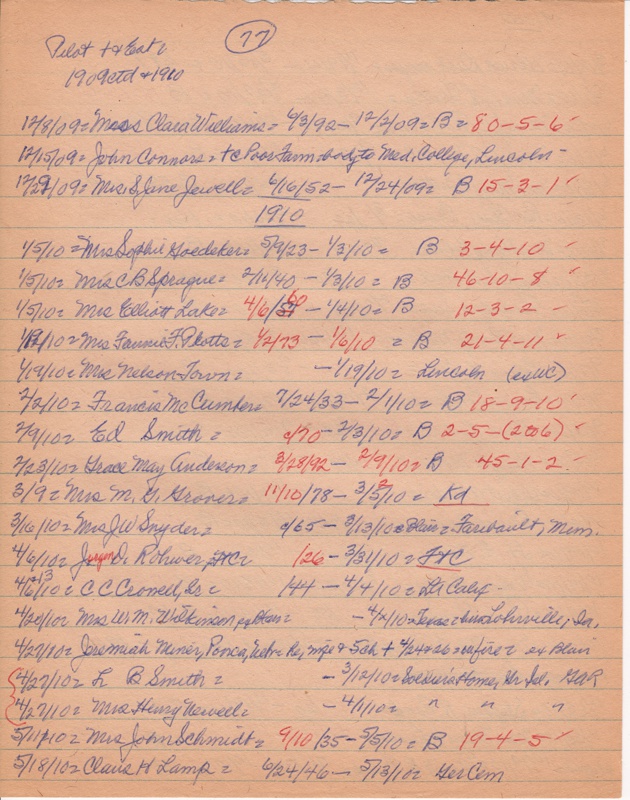 77
Pilot
1909 ctd + 1910
12/8/09 = Miss Clara Williams = 4/3/92 - 12/2/09 = B = 80-5-6
12/15/09 = John Connors = Poor Farm body to Med. College, Lincoln -
12/29/09 = Mrs S. June Jewell = 6/16/52 - 12/24/09 = B 15-3-1
1910
1/5/10 = Mrs Sophie Goedeker = 5/9/23 - 1/3/10 = B 3-4-10
1/5/10 = Mrs C B Sprague = 2/16/40 - 1/3/10 = B 46-10-8
1/5/10 = Mrs Elliott Lake = 4/6/60 - 1/4/10 = B 12-3-2
1/12/10 = Mrs Fannie F. Plotts = 1/2/73 - 1/6/10 = B 21-4-11
1/19/10 = Mrs Nelson Town = - 1/19/10 = Lincoln (ex WC)
2/2/10 = Francis McCumber = 7/24/33 - 2/1/10 = B 18-9-10
2/9/10 = Ed Smith = c/70 - 2/3/10 = B 2-5-(2 6)
2/23/10 = Grace May Anderson = 3/28/92 - 2/9/10 = B 45-1-2
3/9 = Mrs M. G. Grover = 11/10/78 - 3/5/10 = Kd
3/16/10 = Mrs J W Snyder = c/65 - 3/13/10 = Blair = Faribault, Minn.
4/6/10 = Jurgen D. Rohwer, FtC = 1/26 - 3/31/10 = FtC
4/6/10 + 13 = C C Crowell, Sr = 1/44 - 4/4/10 = Lt Calif -
4/20/10 = Mrs W. M. Wilkinson, = - 4/2/10 = Texas = Lohrville, Ia.
4/27/10 = Jeremiah Mener, Ponca, Neb = Re, wife & 5 ch + 4/24 in fire = ex Blair
4/27/10 = L B Smith = - 3/12/10 = Soldiers Home, Gr Isl. GAR
4/27/10 = Mrs Henry Newell = - 4/1/10 = " " "
5/11/10 = Mrs John Schmidt = 9/10/35 - 5/5/10 = B 19-4-5
5/18/10 = Claus H Lamp = 6/24/46 - 5/13/10 = Ger Cem